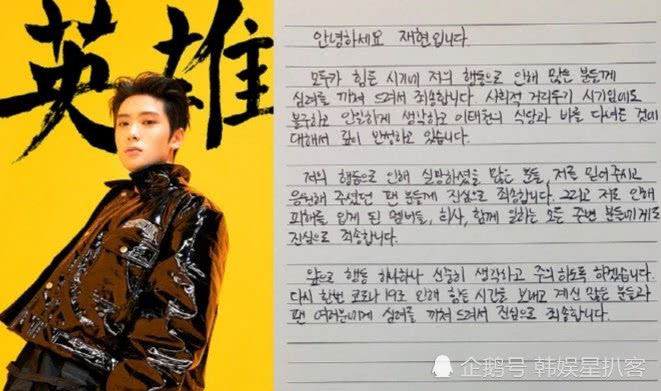 英雄
안녕하세요 재현입니다.
모두가 힘든 시기에 저의 행동으로 인해 많은 분들께
심려를 끼쳐 드려서 죄송합니다. 사회적 거리두기 시기임에도
불구하고 안일하게 생각하고 이태원의 식당과 바를 다녀온 것에
대해서 깊이 반성하고 있습니다.
저의 행동으로 인해 실망하셨을 많은 분들, 저를 믿어주시고
응원해 주셨던 팬 분들께 진심으로 죄송합니다. 그리고 저로 인해
피해를 입게 된 멤버들, 회사, 함께 일하는 모든 주변 분들에게도
진심으로 죄송합니다.
앞으로 행동 하나하나 신중히 생각하고 주의하도록 하겠습니다.
다시 한번 코로나 19로 인해 힘든 시간을 보내고 계신 많은 분들과
팬 여러분에게 심려를 끼쳐 드려서 진심으로 죄송합니다.
企鹅号 韩娱星扒客